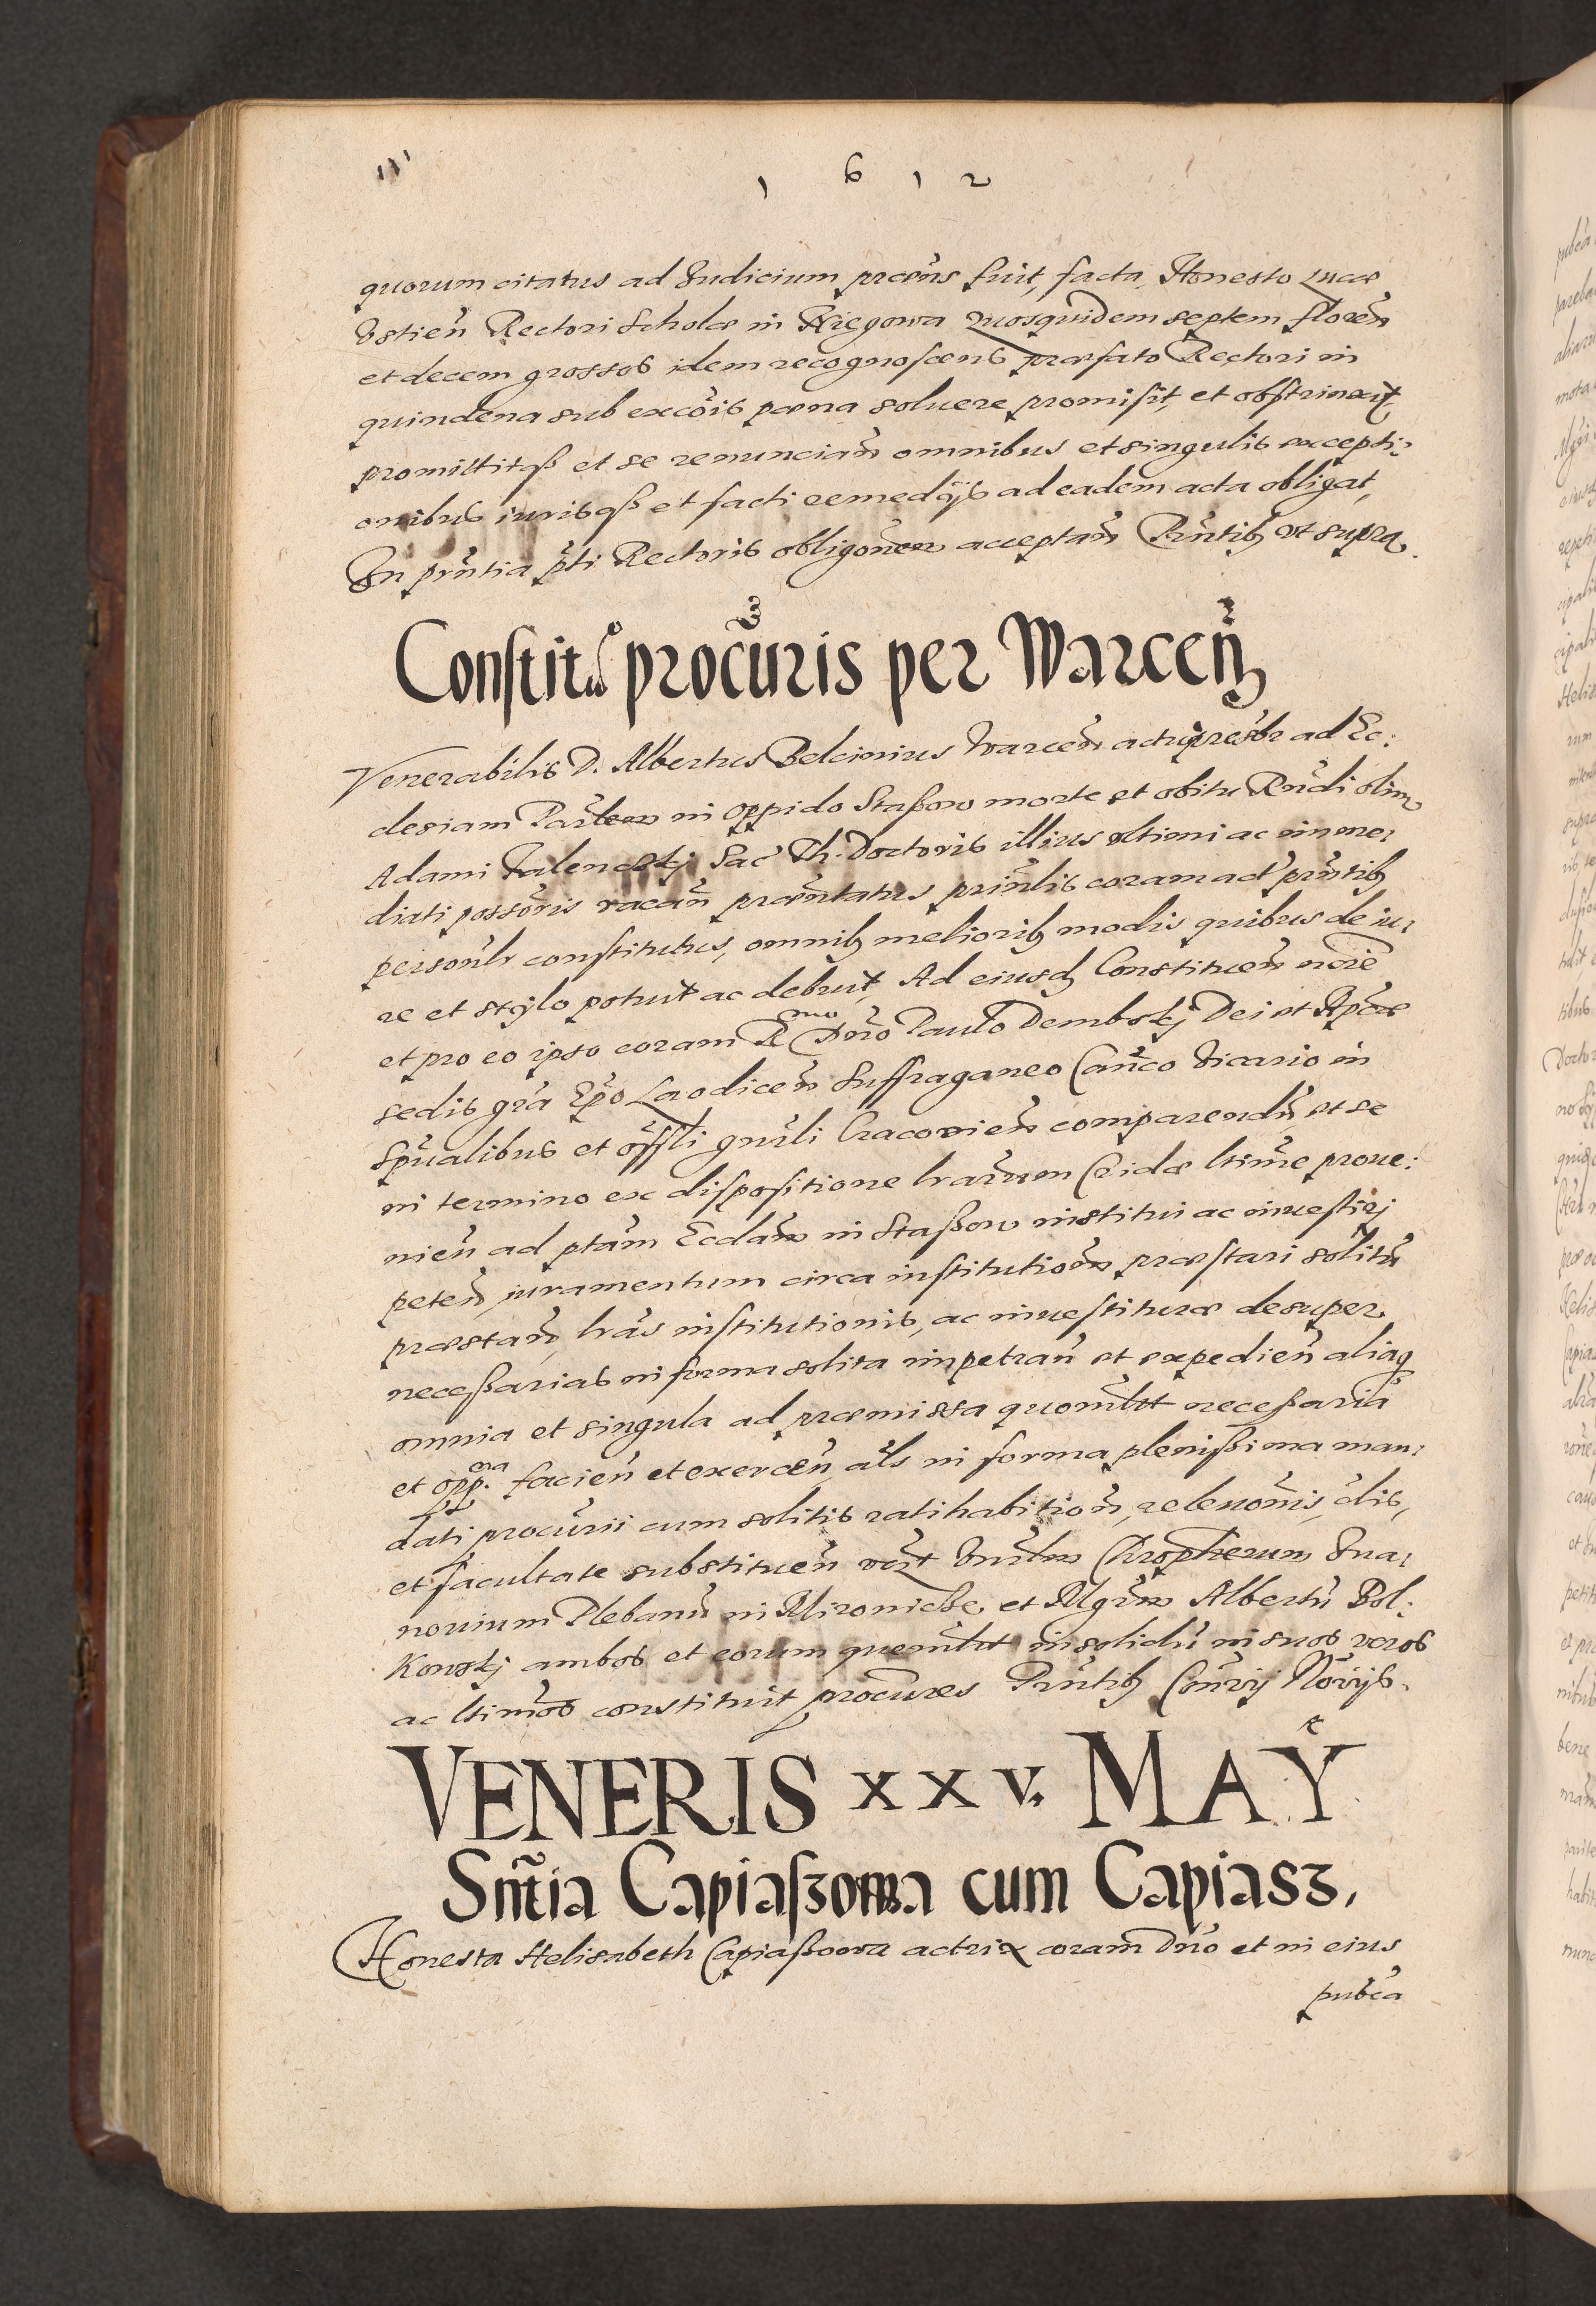 1 6 1 2
quorum citatus ad Judicium præñs fuit, facta, Honesto Lucæ
Ostieñ Rectori Scholæ in Xięgowa quosquidem septem floreñ
et decem grossos idem recognoscens præfato Rectori in
quindena sub excoĩs pæna soluere promisit, et obstrinxit,
promittitqß et se renunciañ omnibus et singulis excepti:
onibus iurisqß et facti remedijs ad eadem acta obligat,
In prñtia pti Rectoris obligoñem acceptañ Prñtibꝫ vt supra.
Constitᵒ procũris per Warceñꝫ
Venerabilis D. Albertus Belcinius Warceñ actu presbr ad Ec:
clesiam Parlem in oppido Staßow morte et obitu Rñdi olim
Adami Falencskj Sac Th. Doctoris illius vltimi ac imme:
diati possoris vacañ præñtatus prinlis coram act prñtibꝫ
personlr constitutus, omnibꝫ melioribꝫ modis quibus de iu:
re et stylo potuit ac debuit, Ad eiusd Constitueñ noie
et pro eo ipso coram R mo Dño Paulo Dembskj Dei et Apcæ
sedis gra Epo Laodiceñ Suffraganeo Canco Vicario in
Spũalibus et offli gnrli Cracovieñ comparendũ et se
in termino ex dispositione lrarum Cridæ ltime proue:
nieñ ad ptam Ecclam in Staßow institui ac inuestirj
peteñ, juramentum circa institutioñ præstari solitũ
præstañ, lras institutionis, ac inuestituræ desuper
neceßarias in forma solita impetrañ et expedieñ aliaq
omnia et singula ad præmissa quomlbt neceßaria
et opp. na facieñ et exerceñ, als in forma plenißima man:
dati procurii cum solitis ratihabitioñ, releuoñis, clis,
et facultate substitueñ Chrophorum Jua:
nouium Plebanũ in Mironicße, et Mgrm Albertũ Bol:
Konskj ambos et eorum quemlbt insolidũ in suos veros
ac ltimos constituit procures Prñtibꝫ
VENERIS xxv. MAY
Sñtia Capiaſzowa cum Capiasz,
Honesta Helisabeth Capiaßowa actrix coram Dño et in eius
pubca